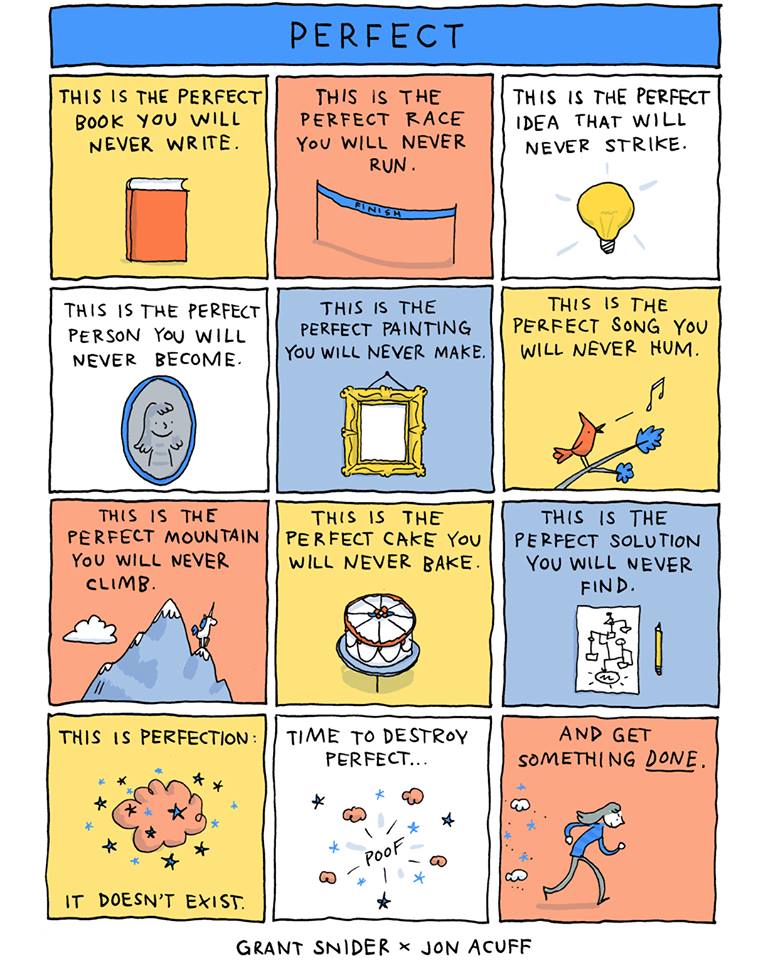 PERFECT
THIS IS THE PERFECT
BOOK YOU WILL
NEVER WRITE.
THIS IS THE
PERFECT RACE
YOU WILL NEVER
RUN.
FINISH
THIS IS THE PERFECT
IDEA THAT WILL
NEVER STRIKE.
THIS IS THE PERFECT
PERSON YOU WILL
NEVER BECOME.
THIS IS THE
PERFECT PAINTING
YOU WILL NEVER MAKE.
THIS IS THE
PERFECT SONG YOU
WILL NEVER HUM.
THIS IS THE
PERFECT MOUNTAIN
YOU WILL NEVER
CLIMB.
THIS IS THE
PERFECT CAKE YOU
WILL NEVER BAKE.
THIS IS THE
PERFECT SOLUTION
YOU WILL NEVER
FIND.
THIS IS PERFECTION:
IT DOESN'T EXIST.
TIME TO DESTROY
PERFECT...
POOF
AND GET
SOMETHING DONE.
GRANT SNIDER × JON ACUFF